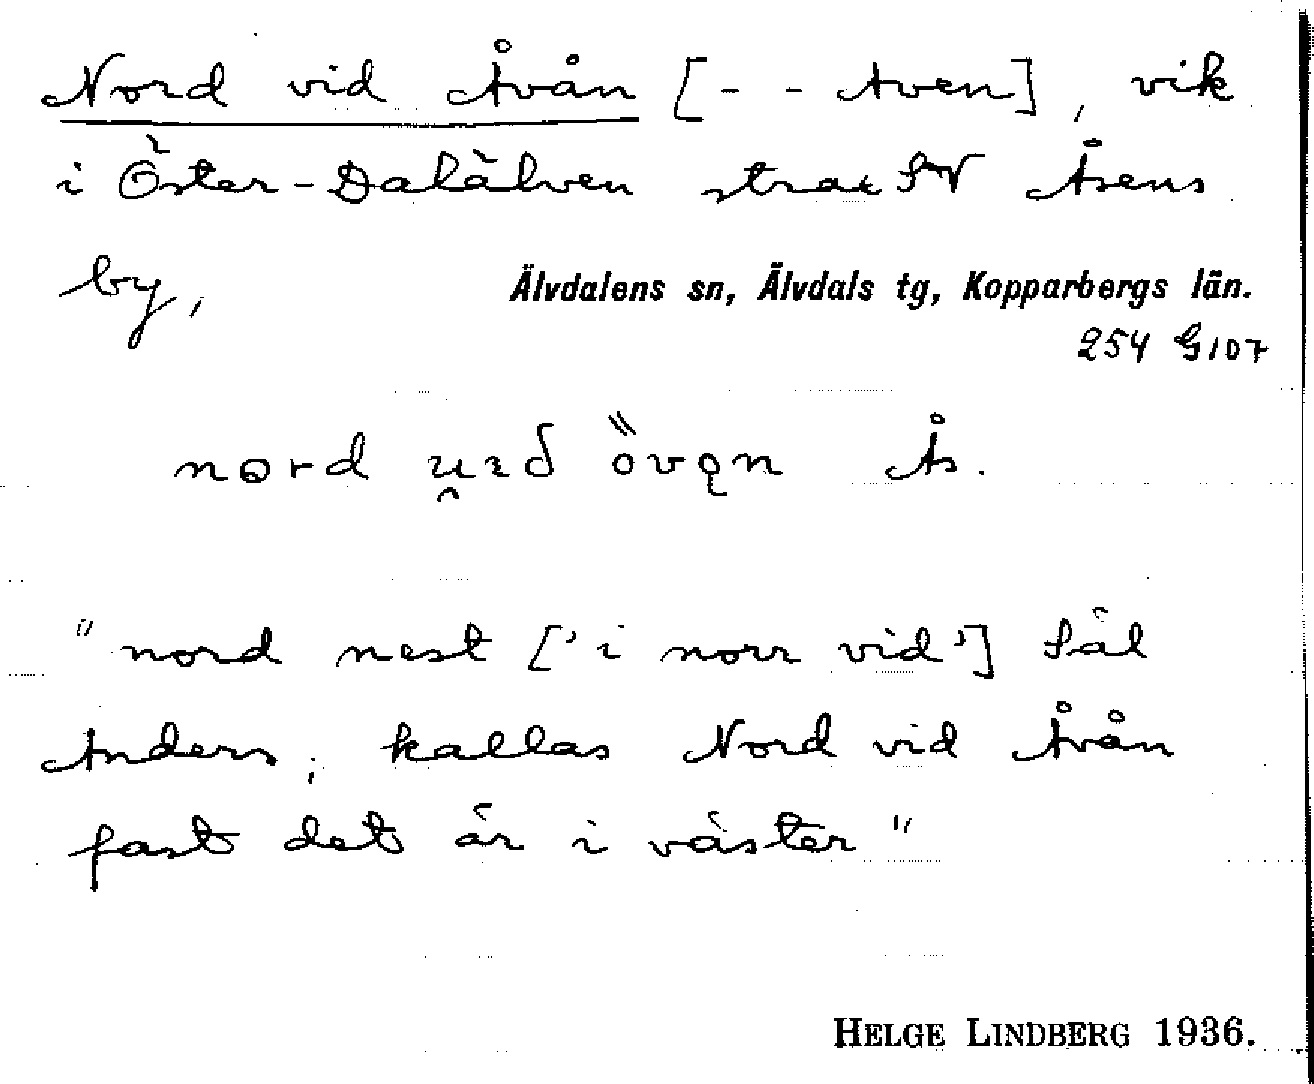 Nord vid Åvån [- - Aven], vik
i Öster-Dalälven strax NV Åsens
by,
Älvdalens sn, Älvdals tg, Kopparbergs län.
254 G107
nord Ås.
"nord nest ['i norr vid'] Sål
Anders; kallas Nord vid Åvån
fast det är i väster"
HELGE LINDBERG 1936.